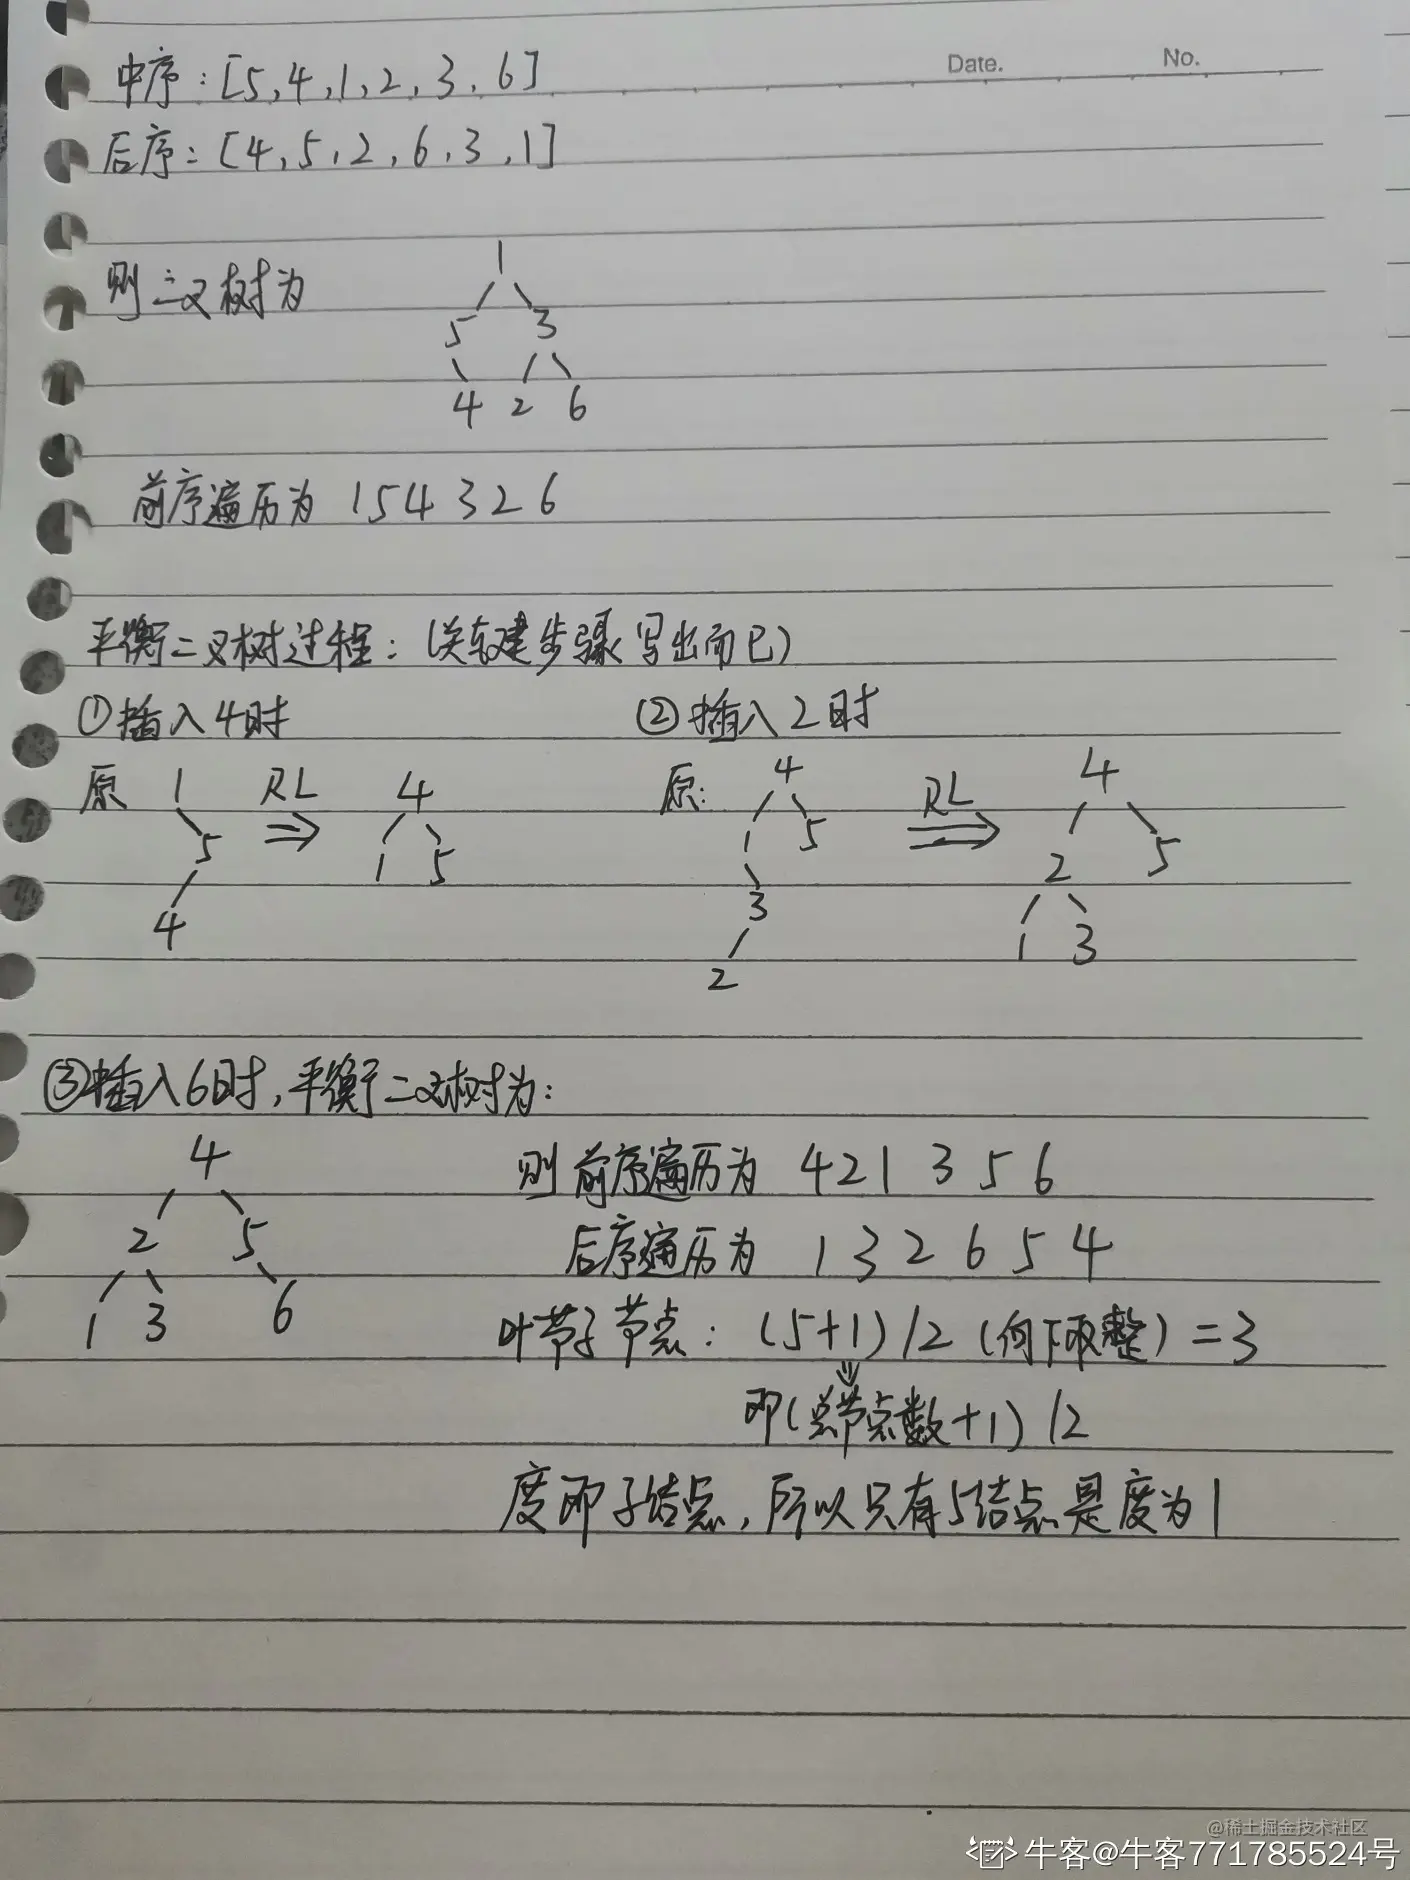 Date. No.
中序：[5,4,1,2,3,6]
后序：[4,5,2,6,3,1]
则二叉树为
1
5 3
4 2 6
前序遍历为 1 5 4 3 2 6
平衡二叉树过程：(关键步骤写出而已)
①插入4时 ②插入2时
原 1 RL 4 原: 4 RL 4
5 1 5 1 5 2 5
4 3 1 3
2
③插入6时,平衡二叉树为:
4 则前序遍历为 4 2 1 3 5 6
2 5 后序遍历为 1 3 2 6 5 4
1 3 6 叶节子节点：(5+1)/2 (向下取整)=3
即(总节点数+1)/2
度即子结点,所以只有5结点是度为1
@稀土掘金技术社区
牛客@牛客771785524号